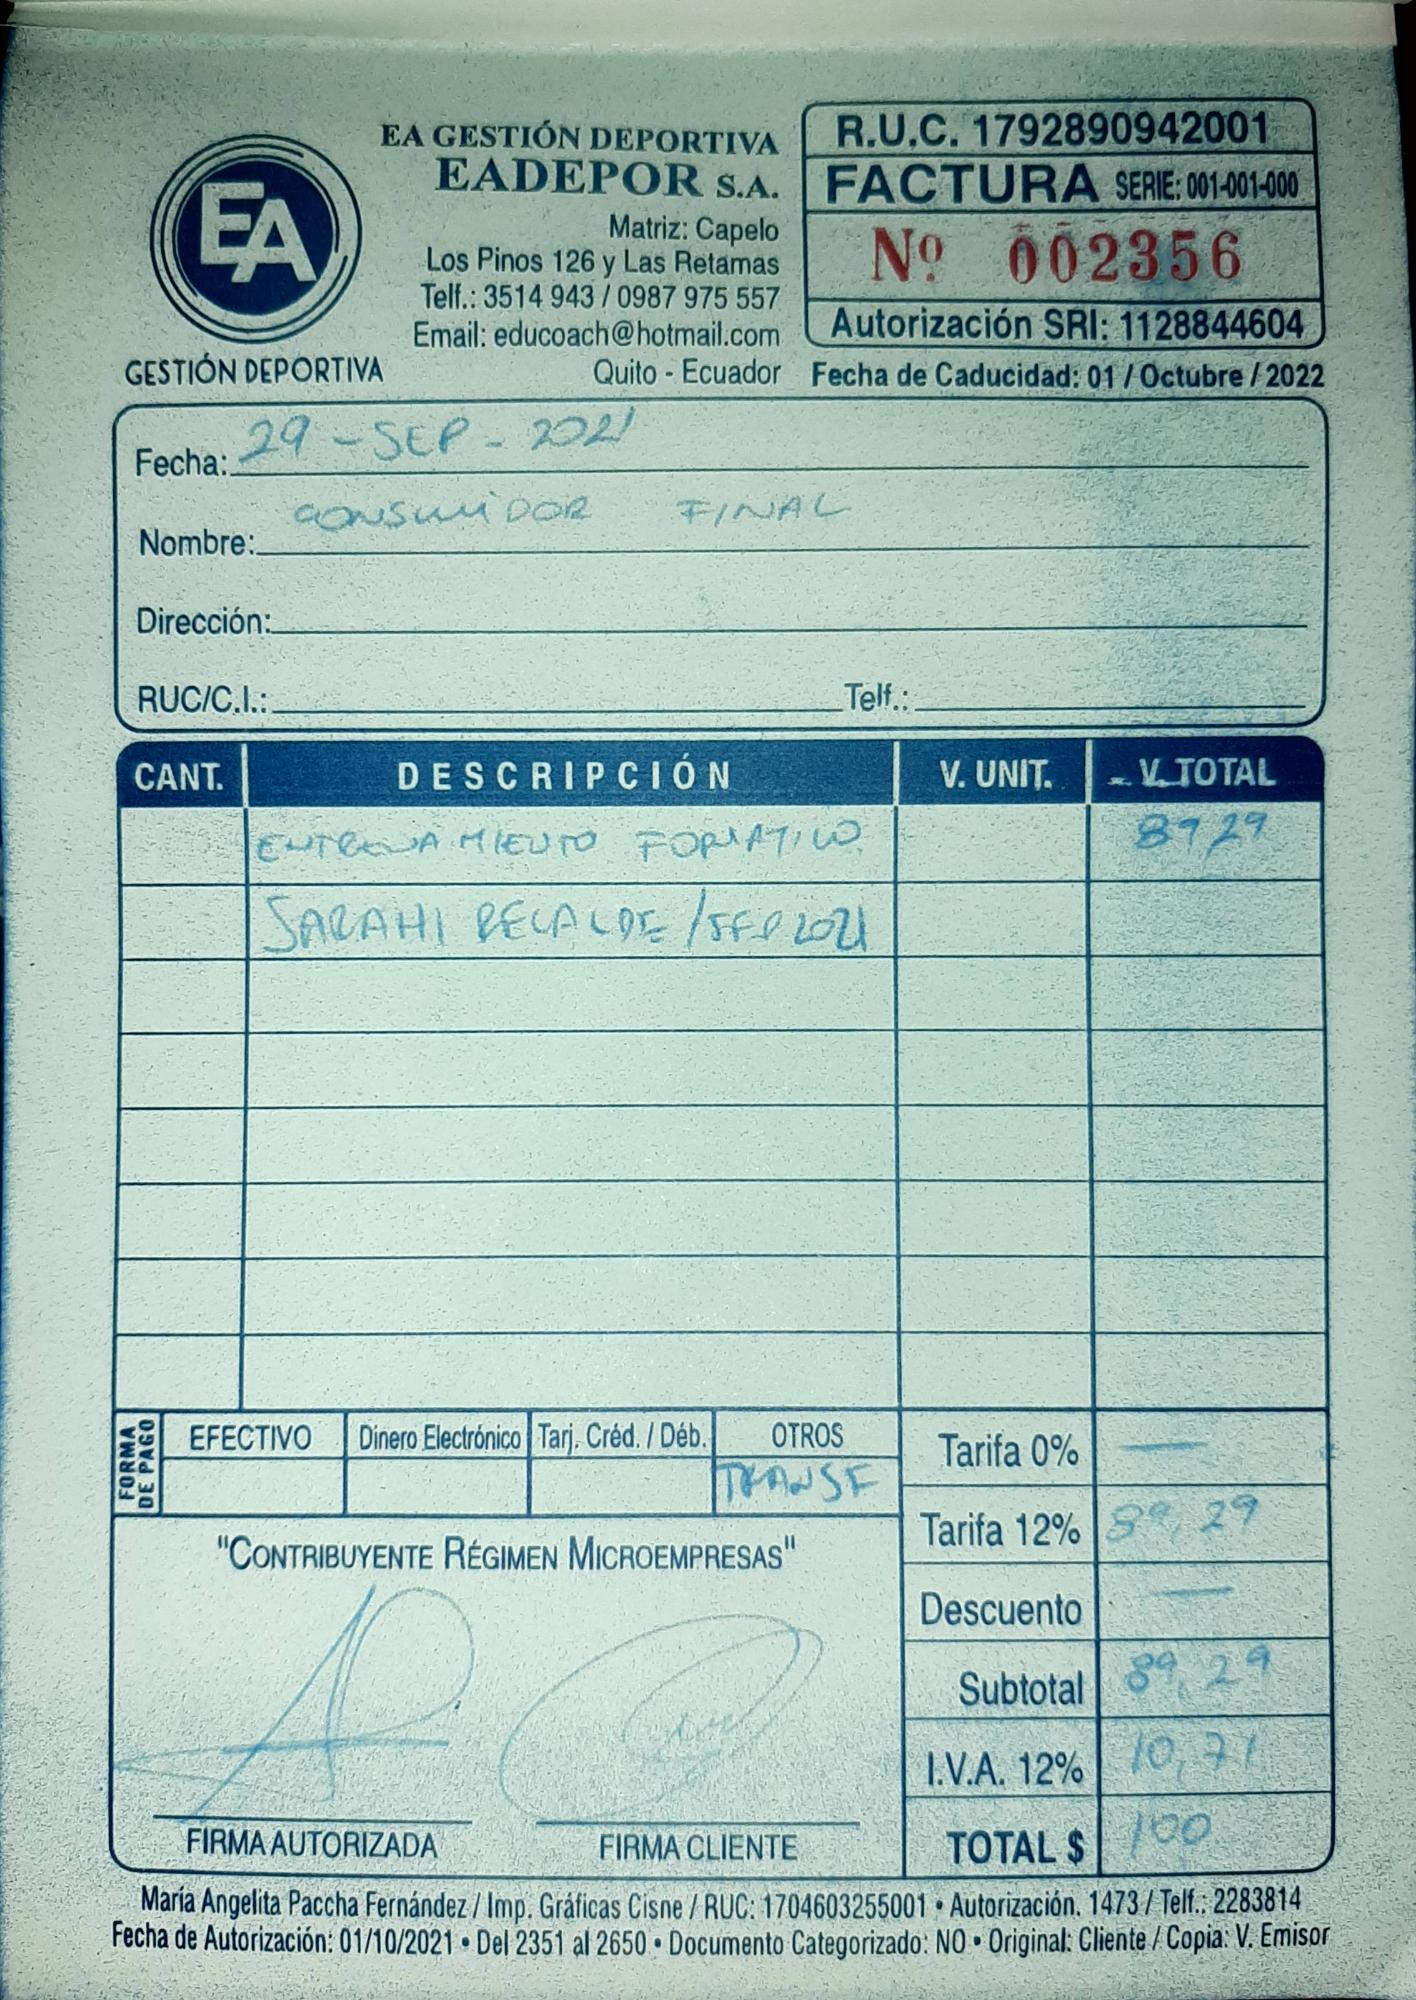 EA GESTIÓN DEPORTIVA
EADEPOR S.A.
Matriz: Capelo
Los Pinos 126 y Las Retamas
Telf.: 3514 943 / 0987 975 557
Email: educoach@hotmail.com
Quito - Ecuador
EA
GESTIÓN DEPORTIVA
R.U.C. 1792890942001
FACTURA SERIE: 001-001-000
Nº 002356
Autorización SRI: 1128844604
Fecha de Caducidad: 01 / Octubre / 2022
Fecha: 29 - SEP - 2021
Nombre: CONSUMIDOR FINAL
Dirección:
RUC/C.I.: Telf.:
CANT. DESCRIPCIÓN V. UNIT. V. TOTAL
ENTRENAMIENTO FORMATIVO 89,29
SARAHI RECALDE / SEP 2021
FORMA DE PAGO
EFECTIVO Dinero Electrónico Tarj. Créd. / Déb. OTROS
TRANSF
Tarifa 0% —
Tarifa 12% 89,29
Descuento —
Subtotal 89,29
I.V.A. 12% 10,71
TOTAL $ 100
"CONTRIBUYENTE RÉGIMEN MICROEMPRESAS"
FIRMA AUTORIZADA FIRMA CLIENTE
María Angelita Paccha Fernández / Imp. Gráficas Cisne / RUC: 1704603255001 • Autorización. 1473 / Telf.: 2283814
Fecha de Autorización: 01/10/2021 • Del 2351 al 2650 • Documento Categorizado: NO • Original: Cliente / Copia: V. Emisor